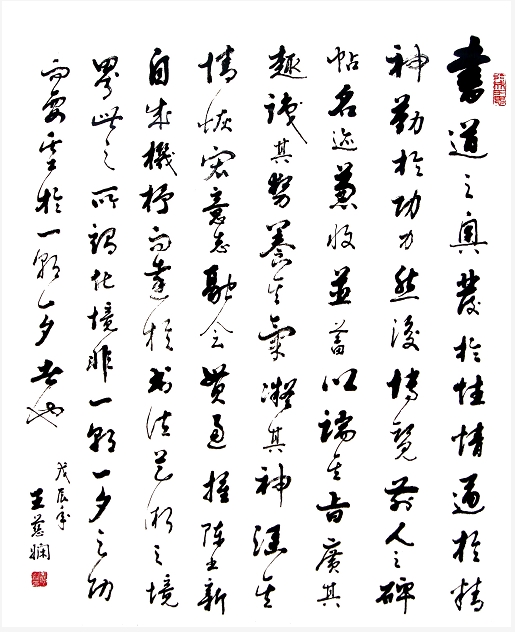 書道之奧發於性情通於精
神勤於功力然後博覽前人之碑
帖名迹兼收並蓄以端其旨廣其
趣識其勢養其氣凝其神其
情恢宏意志融會貫通推陳出新
自成機杼而達於書法藝術之境
界此之所謂化境非一朝一夕之功
而要於一朝一夕者也
戊辰年
王慈嫻